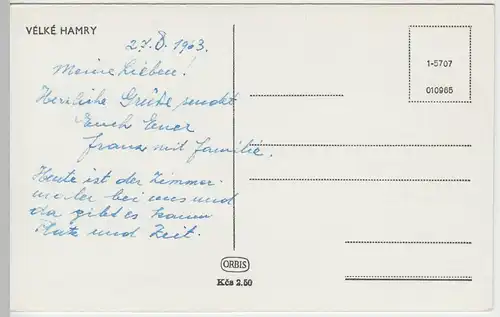 VELKÉ HAMRY
27.8. 1963.
Meine Lieben!
Herzliche Grüße sendet
Euch Euer
Franz mit Familie.
Heute ist der Zimmer-
maler bei uns und
da gibt es kaum
Platz und Zeit.
1-5707
010965
ORBIS
Kčs 2.50